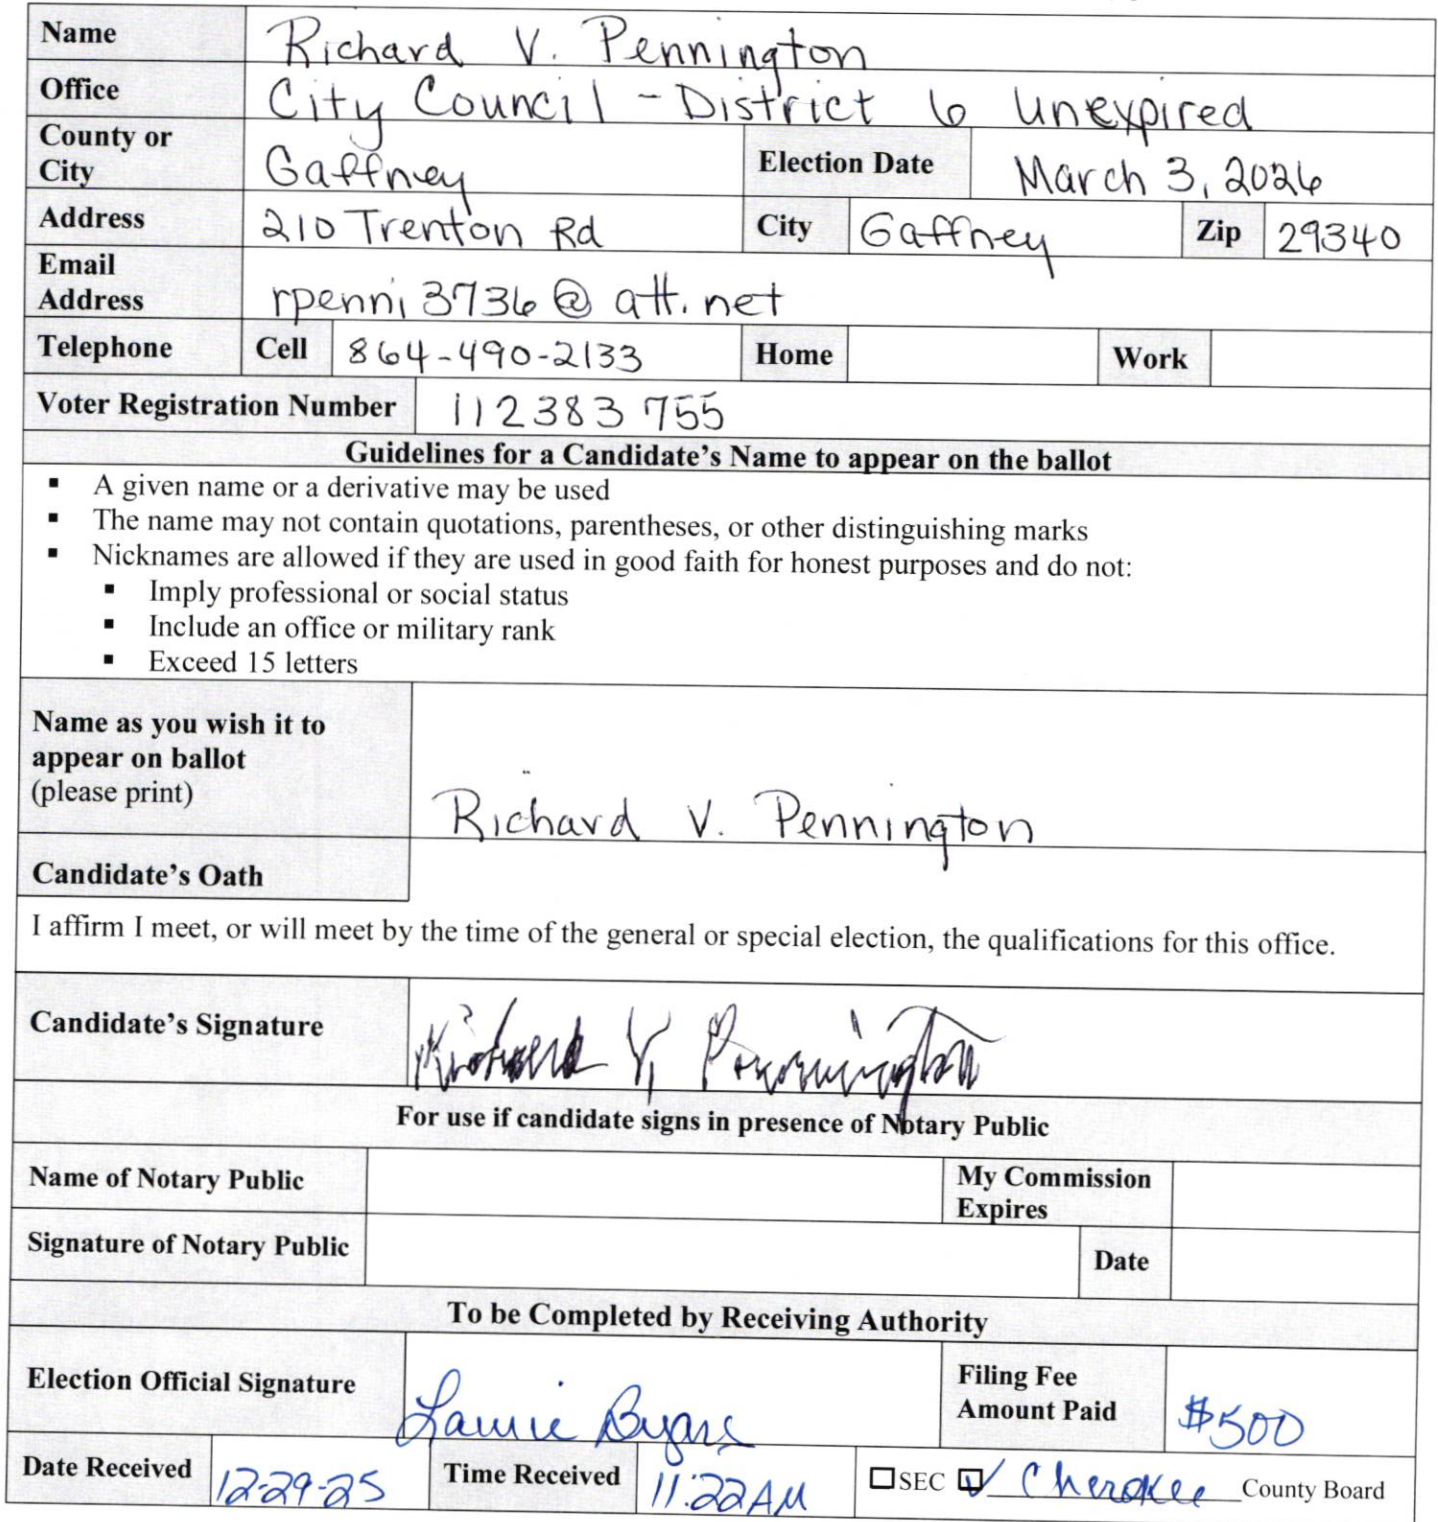 Name Richard V. Pennington
Office City Council - District 6 Unexpired
County or City Gaffney Election Date March 3, 2026
Address 210 Trenton Rd City Gaffney Zip 29340
Email Address rpenni3736@att.net
Telephone Cell 864-490-2133 Home Work
Voter Registration Number 112383755
Guidelines for a Candidate's Name to appear on the ballot
▪ A given name or a derivative may be used
▪ The name may not contain quotations, parentheses, or other distinguishing marks
▪ Nicknames are allowed if they are used in good faith for honest purposes and do not:
▪ Imply professional or social status
▪ Include an office or military rank
▪ Exceed 15 letters
Name as you wish it to
appear on ballot
(please print) Richard V. Pennington
Candidate's Oath
I affirm I meet, or will meet by the time of the general or special election, the qualifications for this office.
Candidate's Signature Richard V. Pennington
For use if candidate signs in presence of Notary Public
Name of Notary Public My Commission Expires
Signature of Notary Public Date
To be Completed by Receiving Authority
Election Official Signature Laurie Byars Filing Fee Amount Paid $500
Date Received 12-29-25 Time Received 11:22 AM ☐SEC ☑ Cherokee County Board